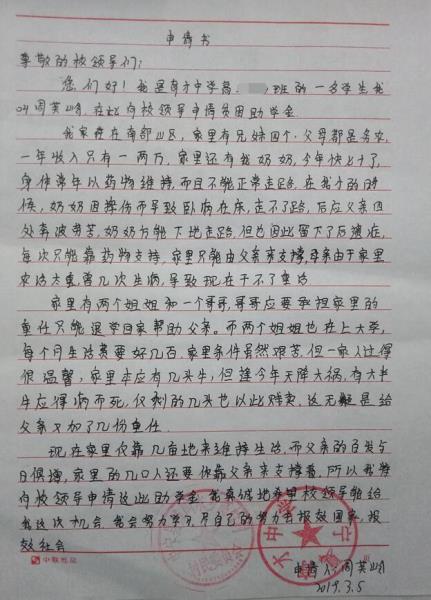 申请书
尊敬的校领导们:
您们好!我是南方中学高 班的一名学生我
叫周英峰,在此向校领导申请贫困助学金.
我家居在南部山区,家里有兄妹四个,父母都是务农,
一年收入只有一两万,家里还有我奶奶,今年快七十了,
身体常年以药物维持,而且不能正常走路,在我小的时
候,奶奶因摔伤而导致卧病在床,走不了路,后应父亲四
处奔波劳苦,奶奶方能下地走路,但也因此留下了后遗症,
每次只能靠药物支持,家里只能由父亲来支撑,母亲由于家里
农活太重,曾几次生病,导致现在干不了重活
家里有两个姐姐和一个哥哥,哥哥应要承担家里的
重任只能退学回家帮助父亲。而两个姐姐也在上大学,
每个月生活费要好几百,家里条件虽然艰苦,但一家人过得
很温馨,家里本应有几头牛,但逢今年天降大祸,有大半
牛应得病而死,仅剩的几头也以此贱卖,这无疑是给
父亲又加了几份重任.
现在家里仅靠几亩地来维持生活,而父亲的白发与
日俱增,家里的几口人还要依靠父亲来支撑着,所以我特
向校领导申请这此助学金,我真诚地希望校领导能给
我这次机会,我会努力学习,尽自己的努力去报效国家,报
效社会
申请人:周英峰
2019.3.5